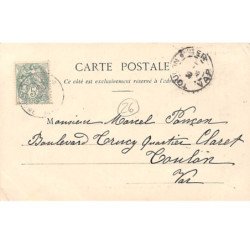 CARTE POSTALE
Ce côté est exclusivement réservé à l'adresse
26
Monsieur Marcel Ponçon
Boulevard Trucy Quartier Claret
Toulon
Var